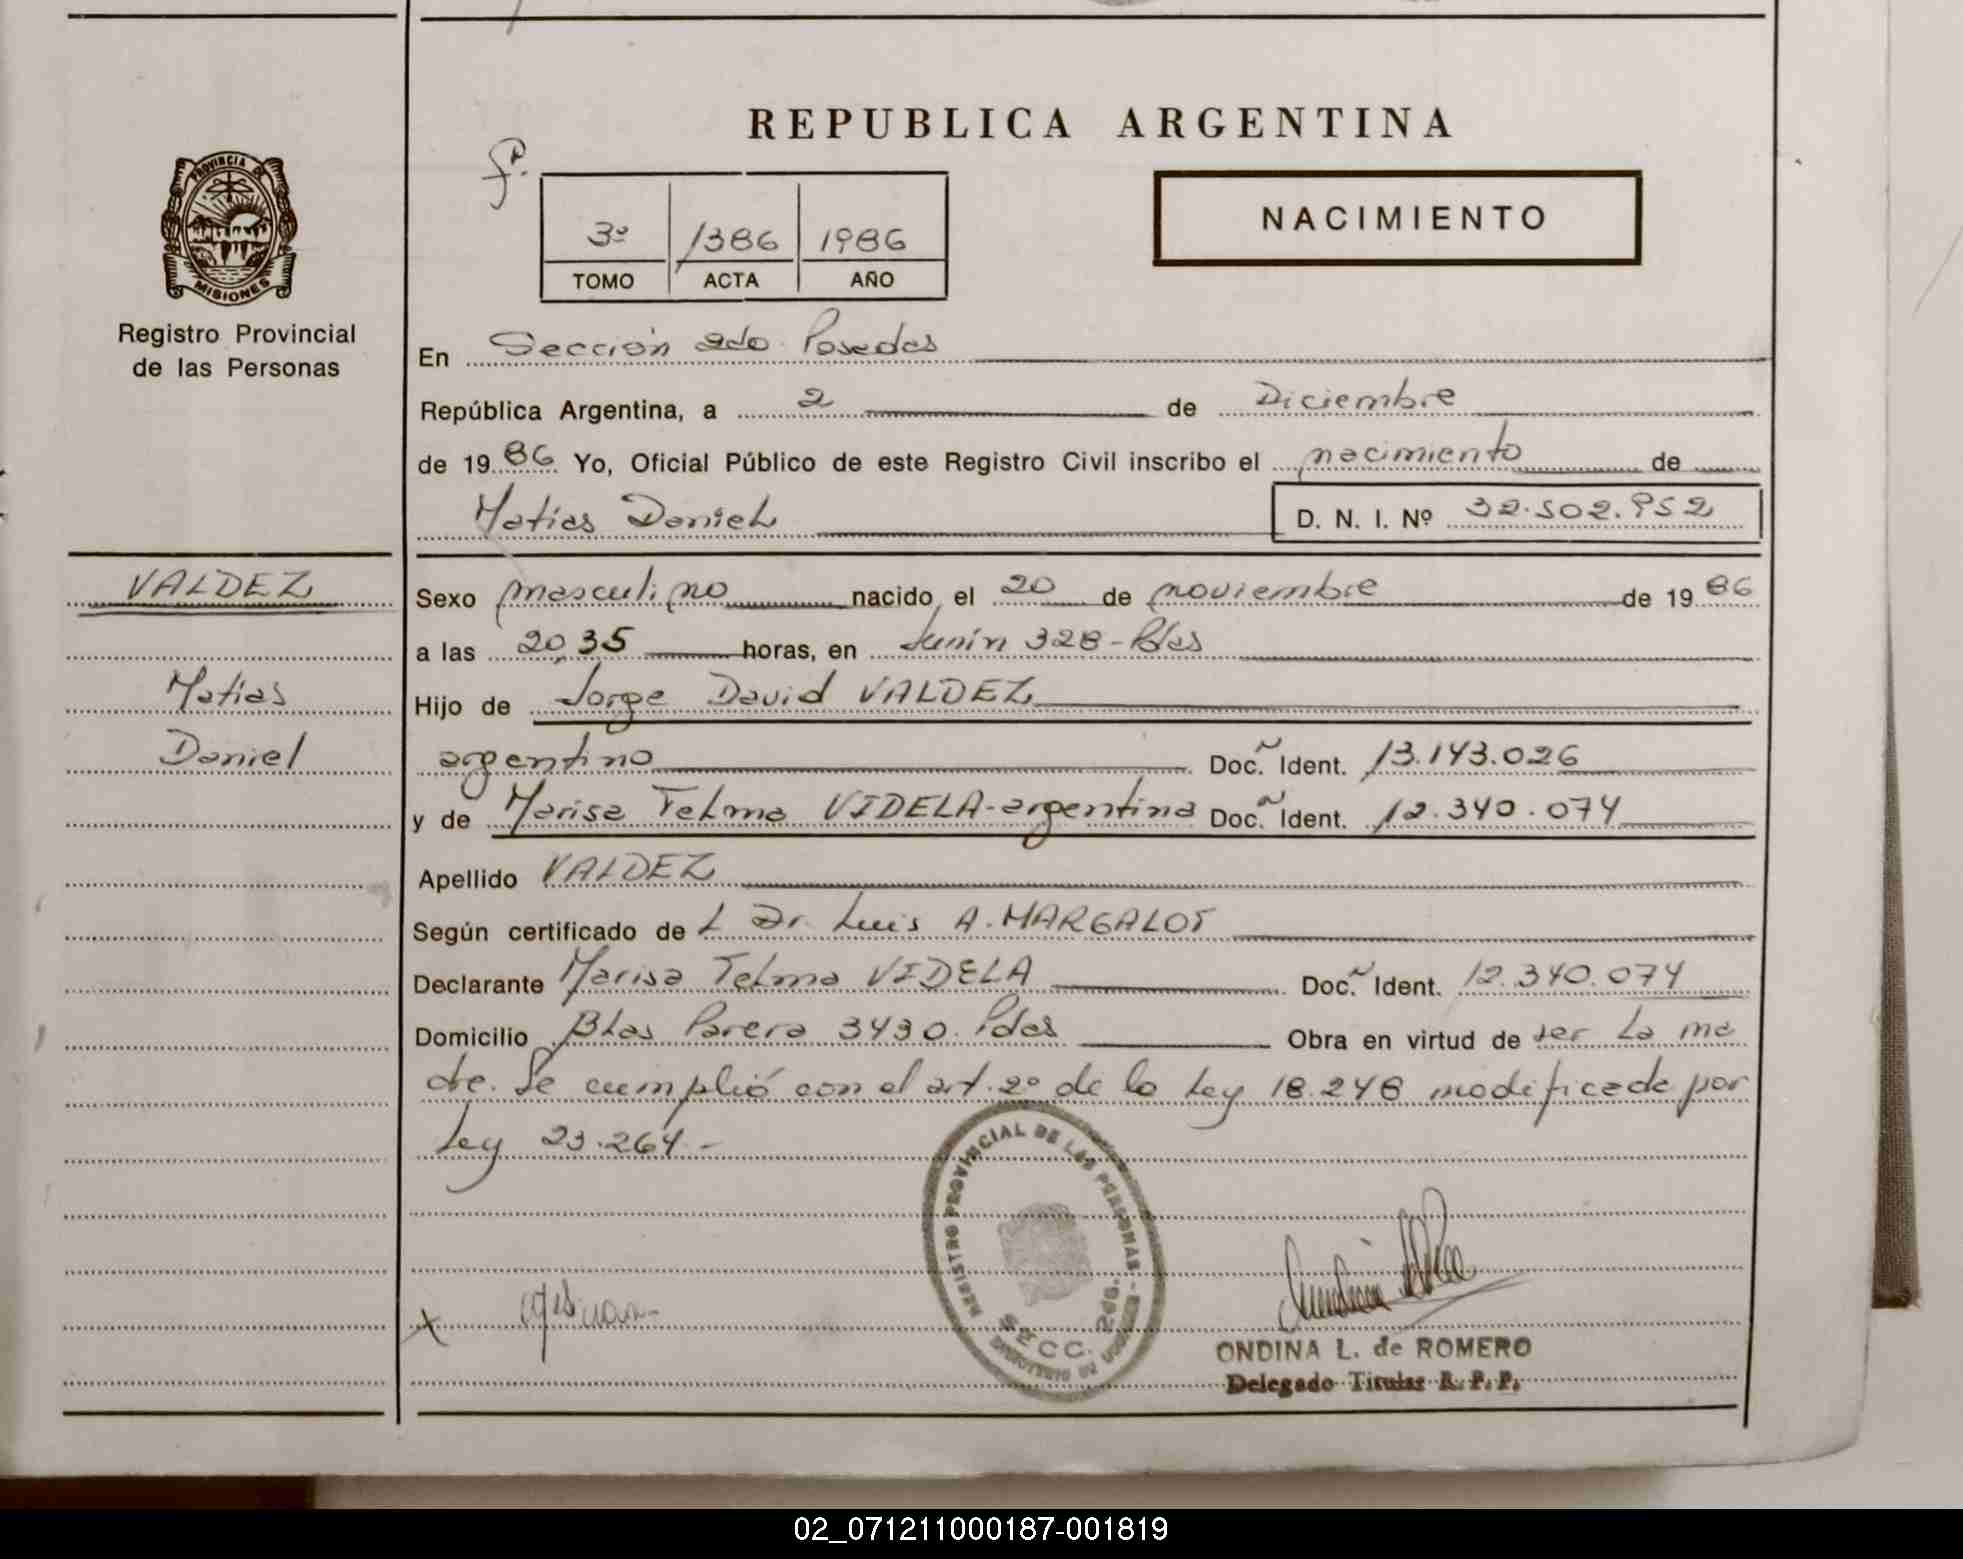 REPUBLICA ARGENTINA
PROVINCIA DE
MISIONES
Registro Provincial
de las Personas
3º 1386 1986
TOMO ACTA AÑO
NACIMIENTO
En Sección 2do Posadas
República Argentina, a 2 de Diciembre
de 1986 Yo, Oficial Público de este Registro Civil inscribo el nacimiento de
Matias Daniel D. N. I. Nº 32.502.952
VALDEZ
Matias
Daniel
Sexo masculino nacido el 20 de noviembre de 1986
a las 20,35 horas, en Junin 328-Pdas
Hijo de Jorge David VALDEZ
argentino Doc. Ident. 13.143.026
y de Marisa Telma VIDELA-argentina Doc. Ident. 12.340.074
Apellido VALDEZ
Según certificado de L Dr. Luis A. MARGALOT
Declarante Marisa Telma VIDELA Doc. Ident. 12.340.074
Domicilio Blas Parera 3430. Pdas Obra en virtud de ser la ma
dre. Se cumplió con el art. 2º de la Ley 18.248 modificada por
Ley 23.264.-
REGISTRO PROVINCIAL DE LAS PERSONAS
SECC. 2da.
ONDINA L. de ROMERO
Delegado Titular R. P. P.
02_071211000187-001819